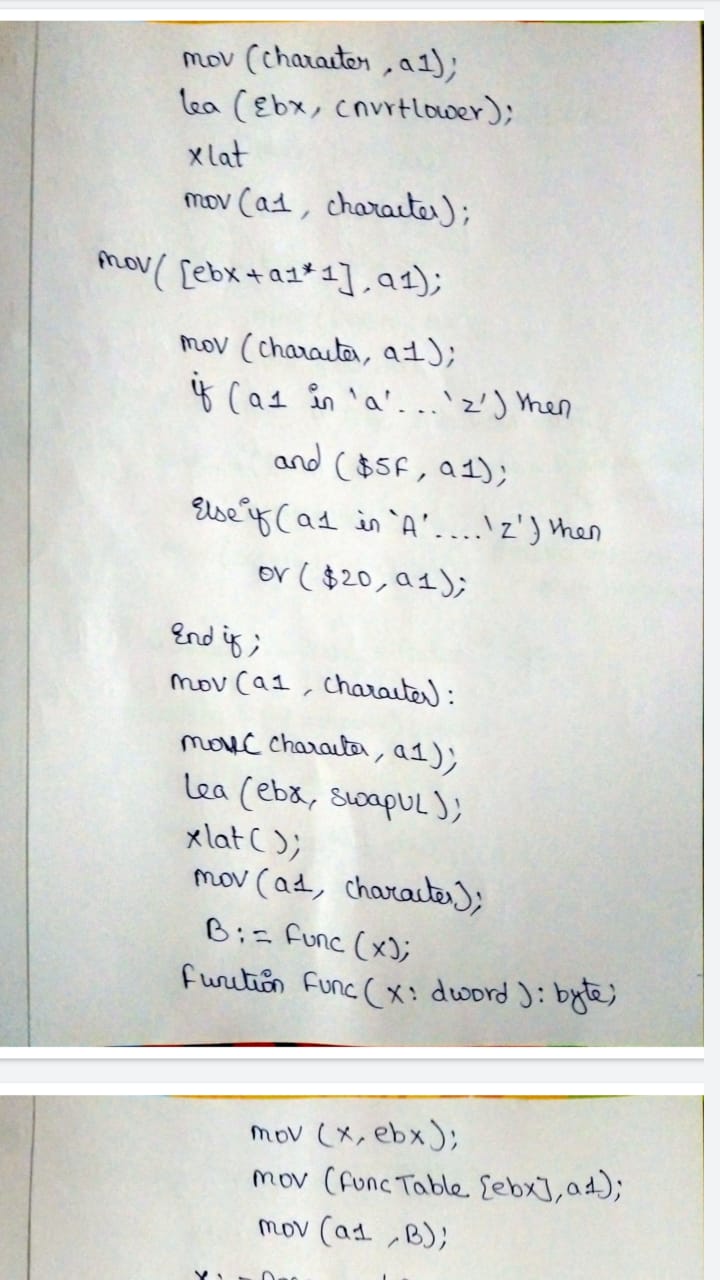 mov (character, a1);
lea (Ebx, cnvrtlower);
xlat
mov (a1, character);
mov( [ebx+a1*1], a1);
mov (character, a1);
if (a1 in 'a'...'z') then
and ($5F, a1);
Elseif (a1 in 'A'....'z') then
or ($20, a1);
End if;
mov (a1, character):
mov( character, a1);
lea (ebx, swapUL);
xlat();
mov (a1, character);
B:= func (x);
function Func (x: dword): byte;
mov (x, ebx);
mov (funcTable [ebx], a1);
mov (a1, B);